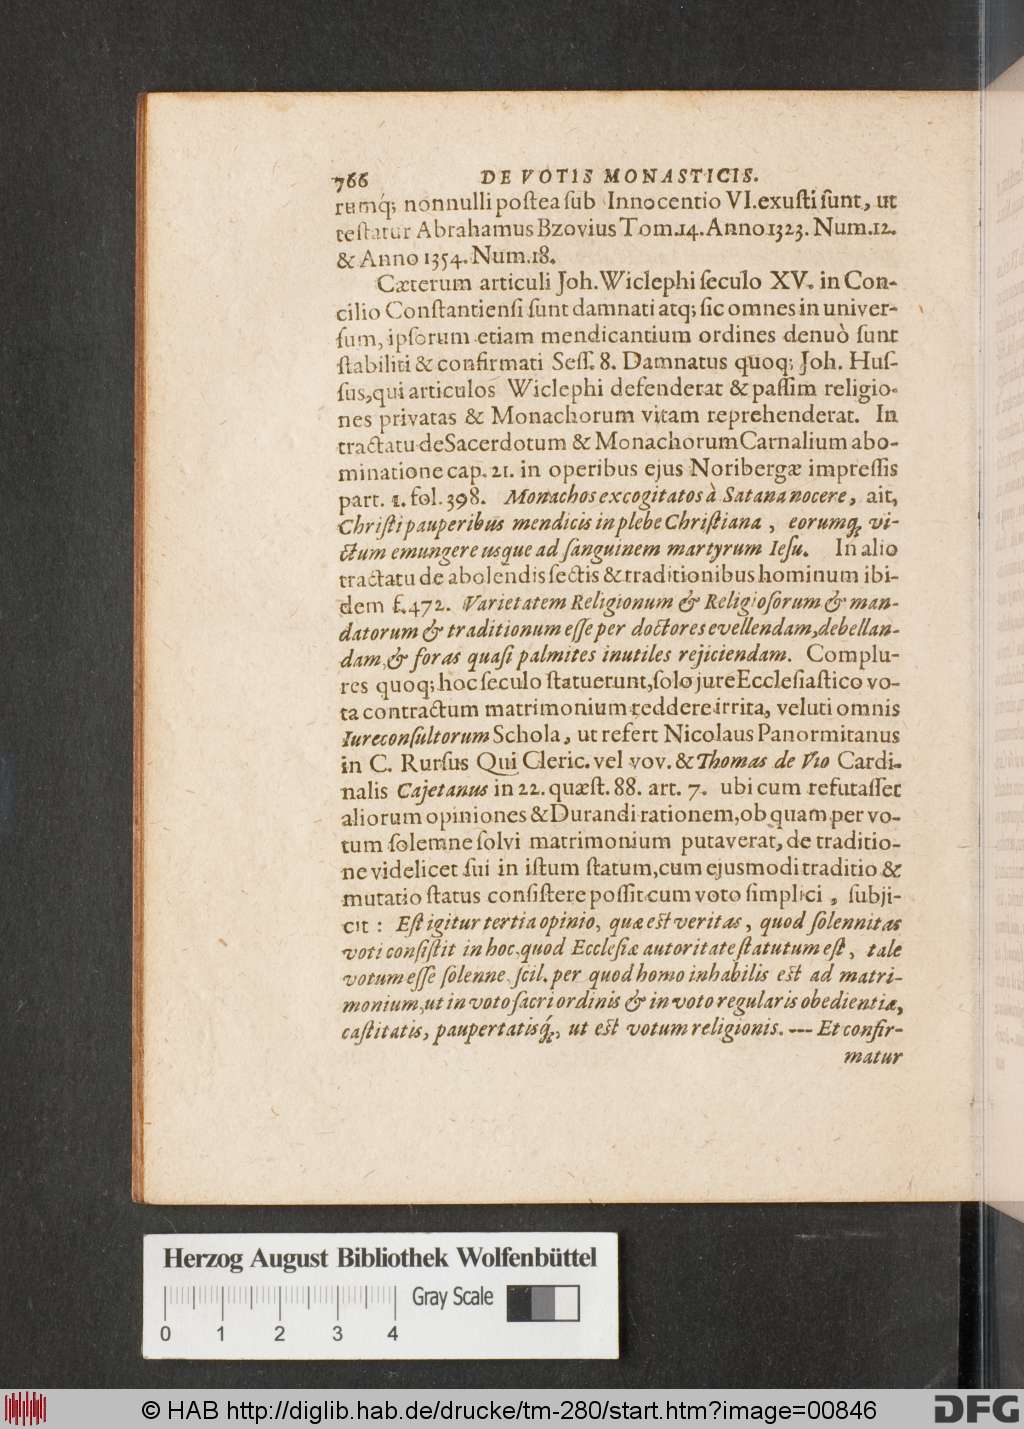 766 DE VOTIS MONASTICIS.
rumq́; nonnulli postea sub Innocentio VI. exusti sunt, ut
testatur Abrahamus Bzovius Tom. 14. Anno 1323. Num. 12.
& Anno 1354. Num. 18.
Cæterum articuli Joh. Wiclephi seculo XV. in Con-
cilio Constantiensi sunt damnati atq; sic omnes in univer-
sum, ipsorum etiam mendicantium ordines denuò sunt
stabiliti & confirmati Sess. 8. Damnatus quoq; Joh. Hus-
sus, qui articulos Wiclephi defenderat & passim religio-
nes privatas & Monachorum vitam reprehenderat. In
tractatu de Sacerdotum & Monachorum Carnalium abo-
minatione cap. 21. in operibus ejus Noribergæ impressis
part. 1. fol. 398. Monachos excogitatos à Satana nocere, ait,
Christi pauperibus mendicis in plebe Christiana, eorumq; vi-
ctum emungere usque ad sanguinem martyrum Iesu. In alio
tractatu de abolendis sectis & traditionibus hominum ibi-
dem f. 472. Varietatem Religionum & Religiosorum & man-
datorum & traditionum esse per doctores evellendam, debellan-
dam, & foras quasi palmites inutiles rejiciendam. Complu-
res quoq; hoc seculo statuerunt, solo jure Ecclesiastico vo-
ta contractum matrimonium reddere irrita, veluti omnis
Iureconsultorum Schola, ut refert Nicolaus Panormitanus
in C. Rursus Qui Cleric. vel vov. & Thomas de Vio Cardi-
nalis Cajetanus in 22. quæst. 88. art. 7. ubi cum refutasset
aliorum opiniones & Durandi rationem, ob quam per vo-
tum solemne solvi matrimonium putaverat, de traditio-
ne videlicet sui in istum statum, cum ejusmodi traditio &
mutatio status consistere possit cum voto simplici, subji-
cit: Est igitur tertia opinio, quæ est veritas, quod solennitas
voti consistit in hoc, quod Ecclesiæ autoritate statutum est, tale
votum esse solenne, scil. per quod homo inhabilis est ad matri-
monium, ut in voto sacri ordinis & in voto regularis obedientiæ,
castitatis, paupertatisq́;, ut est votum religionis. --- Et confir-
matur
Herzog August Bibliothek Wolfenbüttel
0 1 2 3 4 Gray Scale
© HAB http://diglib.hab.de/drucke/tm-280/start.htm?image=00846 DFG